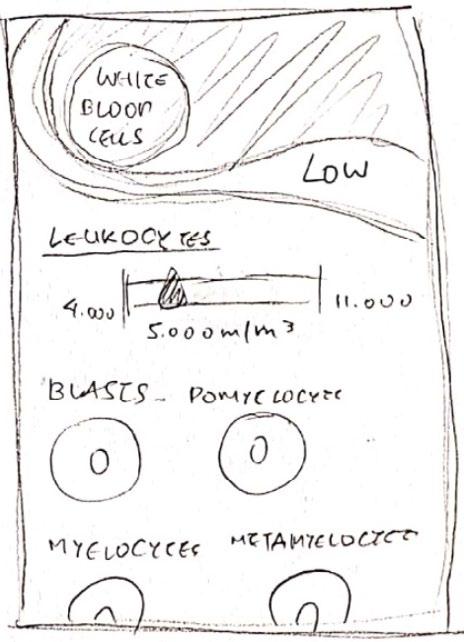 WHITE
BLOOD
CELLS
LOW
LEUKOCYTES
4.000 11.000
5.000 m/m³
BLASTS POMYELOCYTES
0 0
MYELOCYTES METAMYELOCYTES